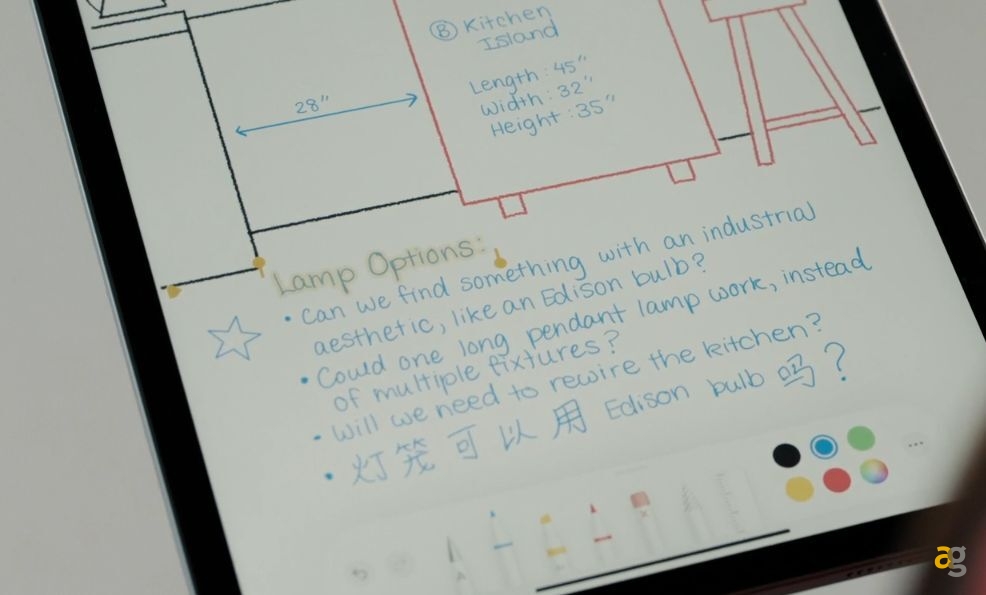 Ⓑ Kitchen
Island
Length : 45"
Width : 32"
Height : 35"
28"
Lamp Options:
• Can we find something with an industrial
aesthetic, like an Edison bulb?
• Could one long pendant lamp work, instead
of multiple fixtures?
• Will we need to rewire the kitchen?
• 灯笼可以用 Edison bulb 吗?
ag